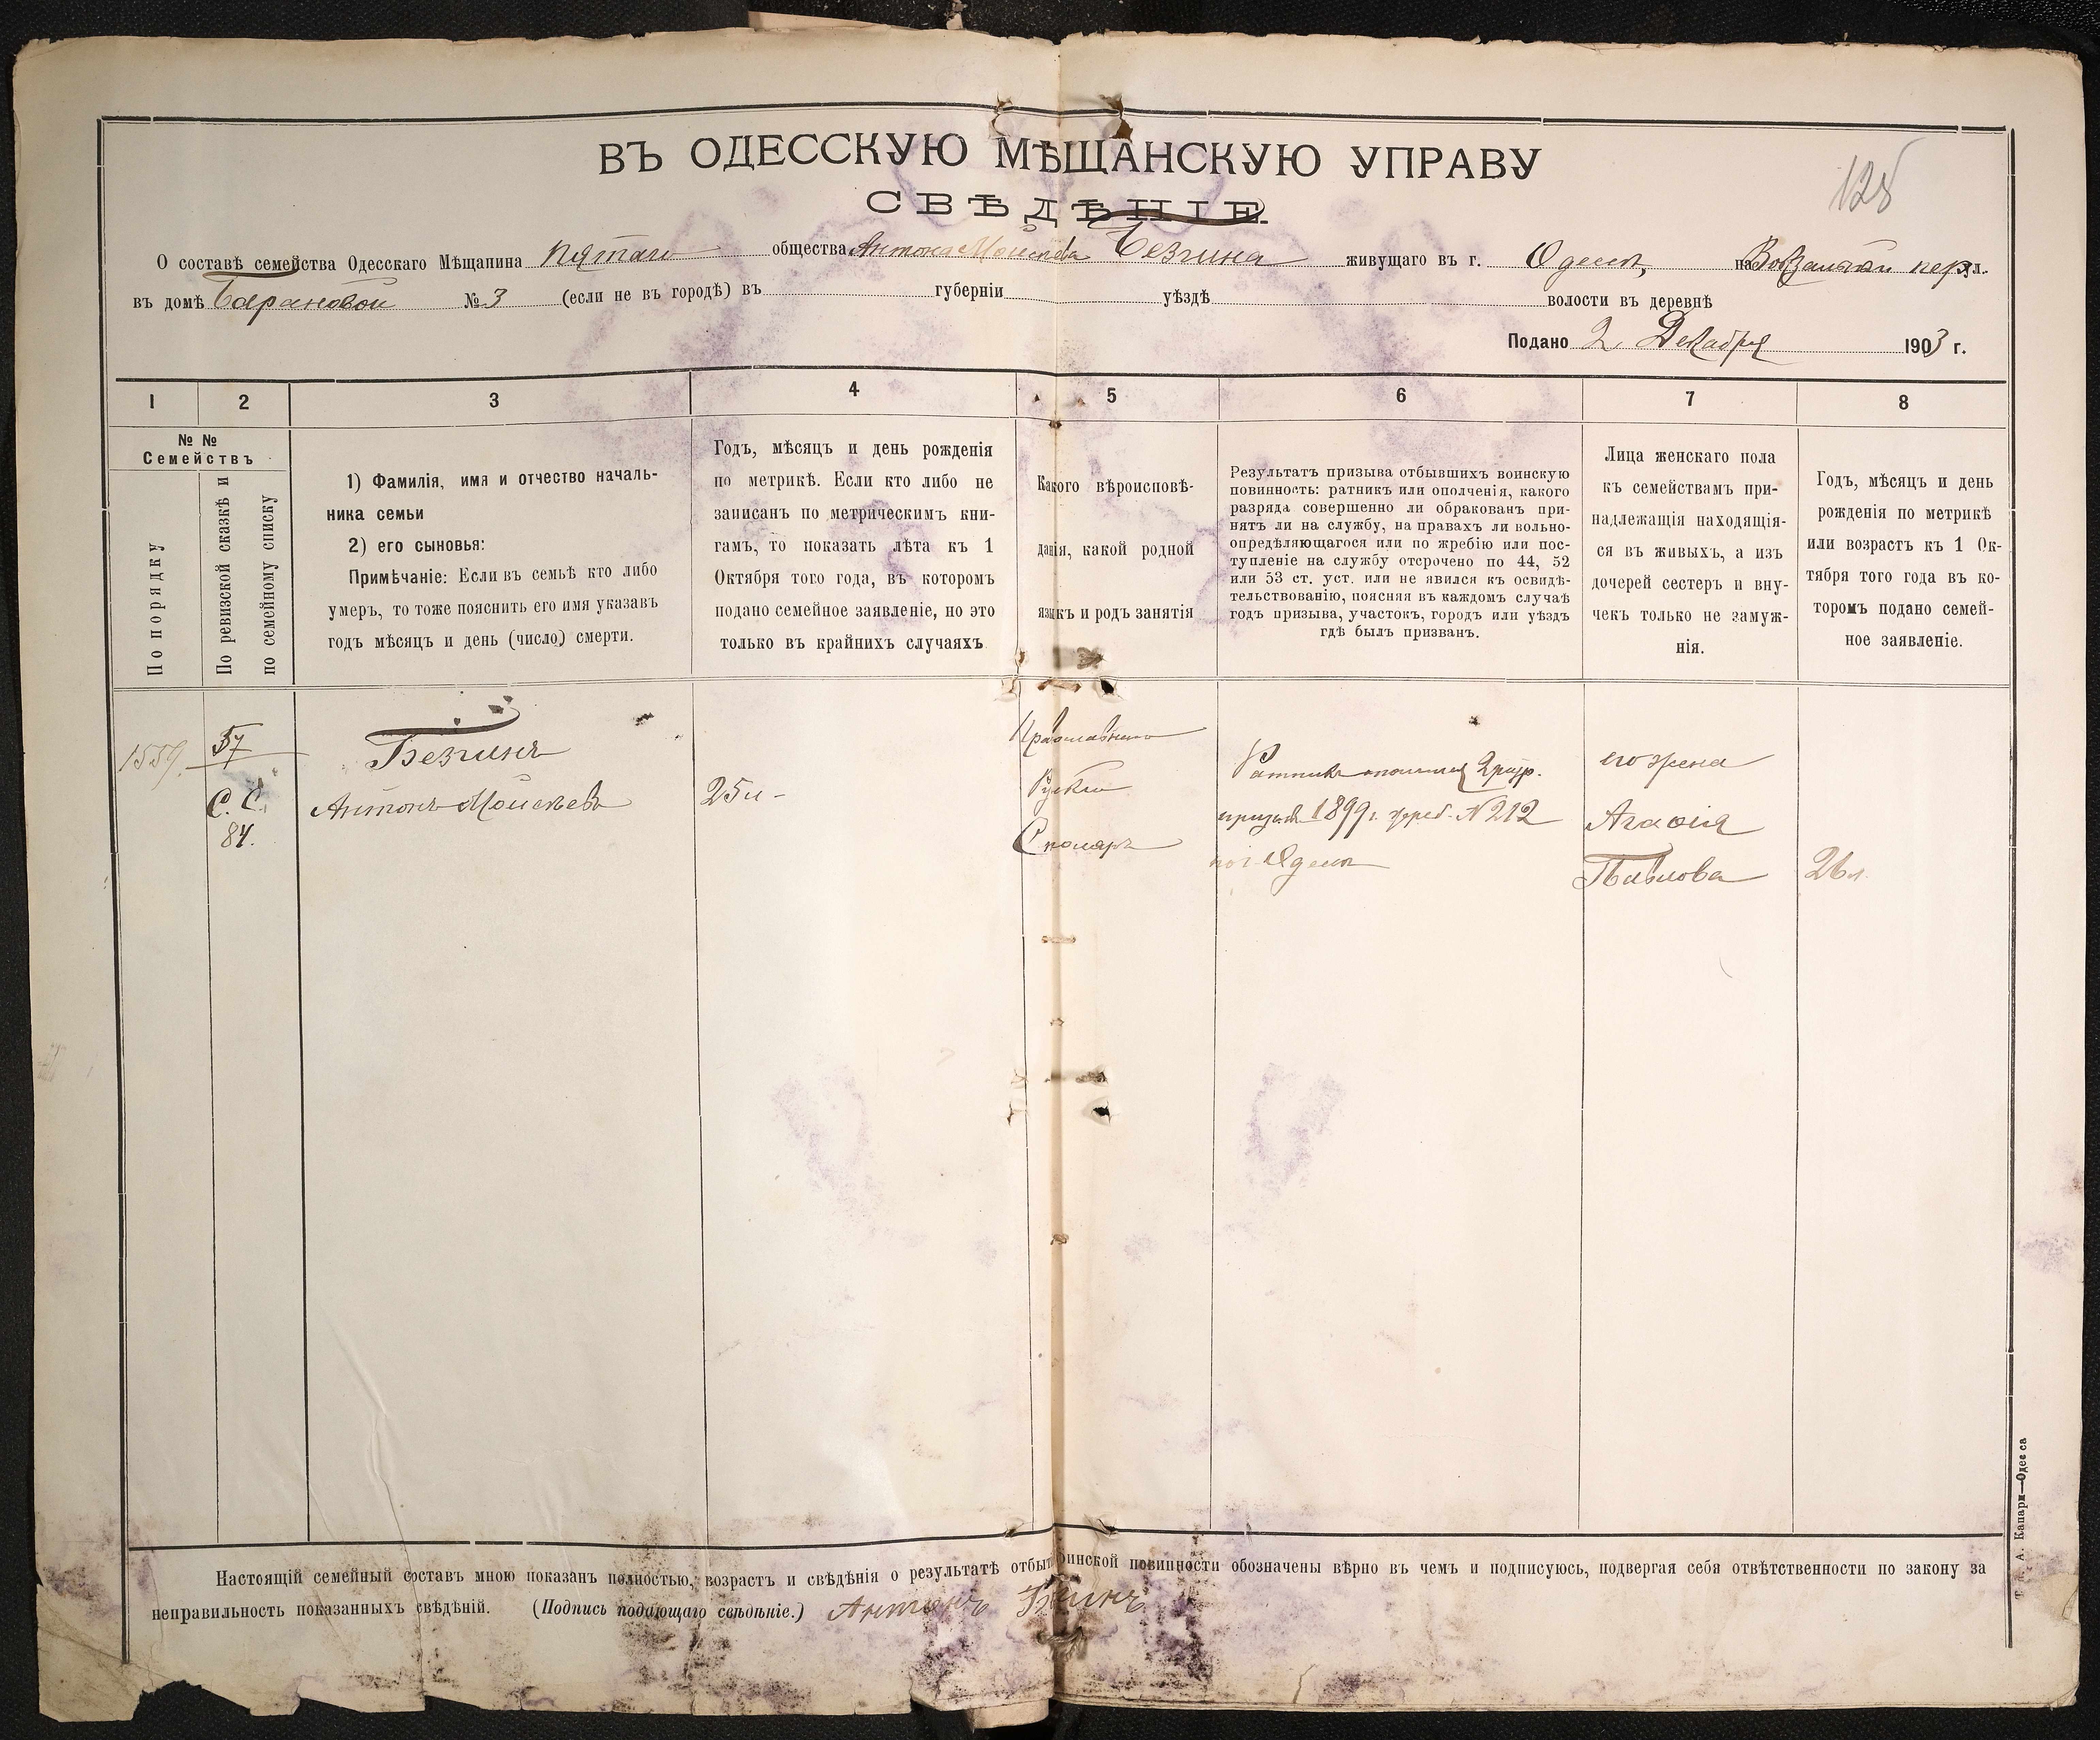 ВЪ ОДЕССКУЮ МѢЩАНСКУЮ УПРАВУ
128
СВѢДѢНІЕ.
О составѣ семейства Одесскаго Мѣщанина пятаго общества Антона Моисѣева Безгина живущаго въ г. Одессѣ, на Вокзальном пер. ул.
въ домѣ Барановой № 3 (если не въ городѣ) въ губерніи уѣздѣ волости въ деревнѣ
Подано 2 Декабря 1903 г.
1 2 3 4 5 6 7 8
№ №
Семействъ
По порядку
По ревизской сказкѣ и
по семейному списку
1) Фамилія, имя и отчество началь-
ника семьи
2) его сыновья:
Примѣчаніе: Если въ семьѣ кто либо
умеръ, то тоже пояснить его имя указавъ
годъ мѣсяцъ и день (число) смерти.
Годъ, мѣсяцъ и день рожденія
по метрикѣ. Если кто либо не
записанъ по метрическимъ кни-
гамъ, то показать лѣта къ 1
Октября того года, въ которомъ
подано семейное заявленіе, но это
только въ крайнихъ случаяхъ
Какого вѣроисповѣ-
данія, какой родной
языкъ и родъ занятія
Результатъ призыва отбывшихъ воинскую
повинность: ратникъ или ополченія, какого
разряда совершенно ли обракованъ при-
нятъ ли на службу, на правахъ ли вольно-
опредѣляющагося или по жребію или пос-
тупленіе на службу отсрочено по 44, 52
или 53 ст. уст. или не явился къ освидѣ-
тельствованію, поясняя въ каждомъ случаѣ
годъ призыва, участокъ, городъ или уѣздъ
гдѣ былъ призванъ.
Лица женскаго пола
къ семействамъ при-
надлежащія находящія-
ся въ живыхъ, а изъ
дочерей сестеръ и вну-
чекъ только не замуж-
нія.
Годъ, мѣсяцъ и день
рожденія по метрикѣ
или возрастъ къ 1 Ок-
тября того года въ ко-
торомъ подано семей-
ное заявленіе.
1559.
57
С. С.
84.
Безгинъ
Антонъ Моисѣевъ
25 л
Православнаго
Рускій
Столяръ
Ратникъ ополчен 2 разр.
призыва 1899 г. жреб. № 212
по г. Одессѣ
его жена
Агафія
Павлова
26 л.
Настоящій семейный составъ мною показанъ полностью, возрастъ и свѣдѣнія о результатѣ отбыт воинской повинности обозначены вѣрно въ чемъ и подписуюсь, подвергая себя отвѣтственности по закону за
неправильность показанныхъ свѣдѣній. (Подпись подающаго свѣдѣніе.) Антонъ
Т. А. Капари—Одесса